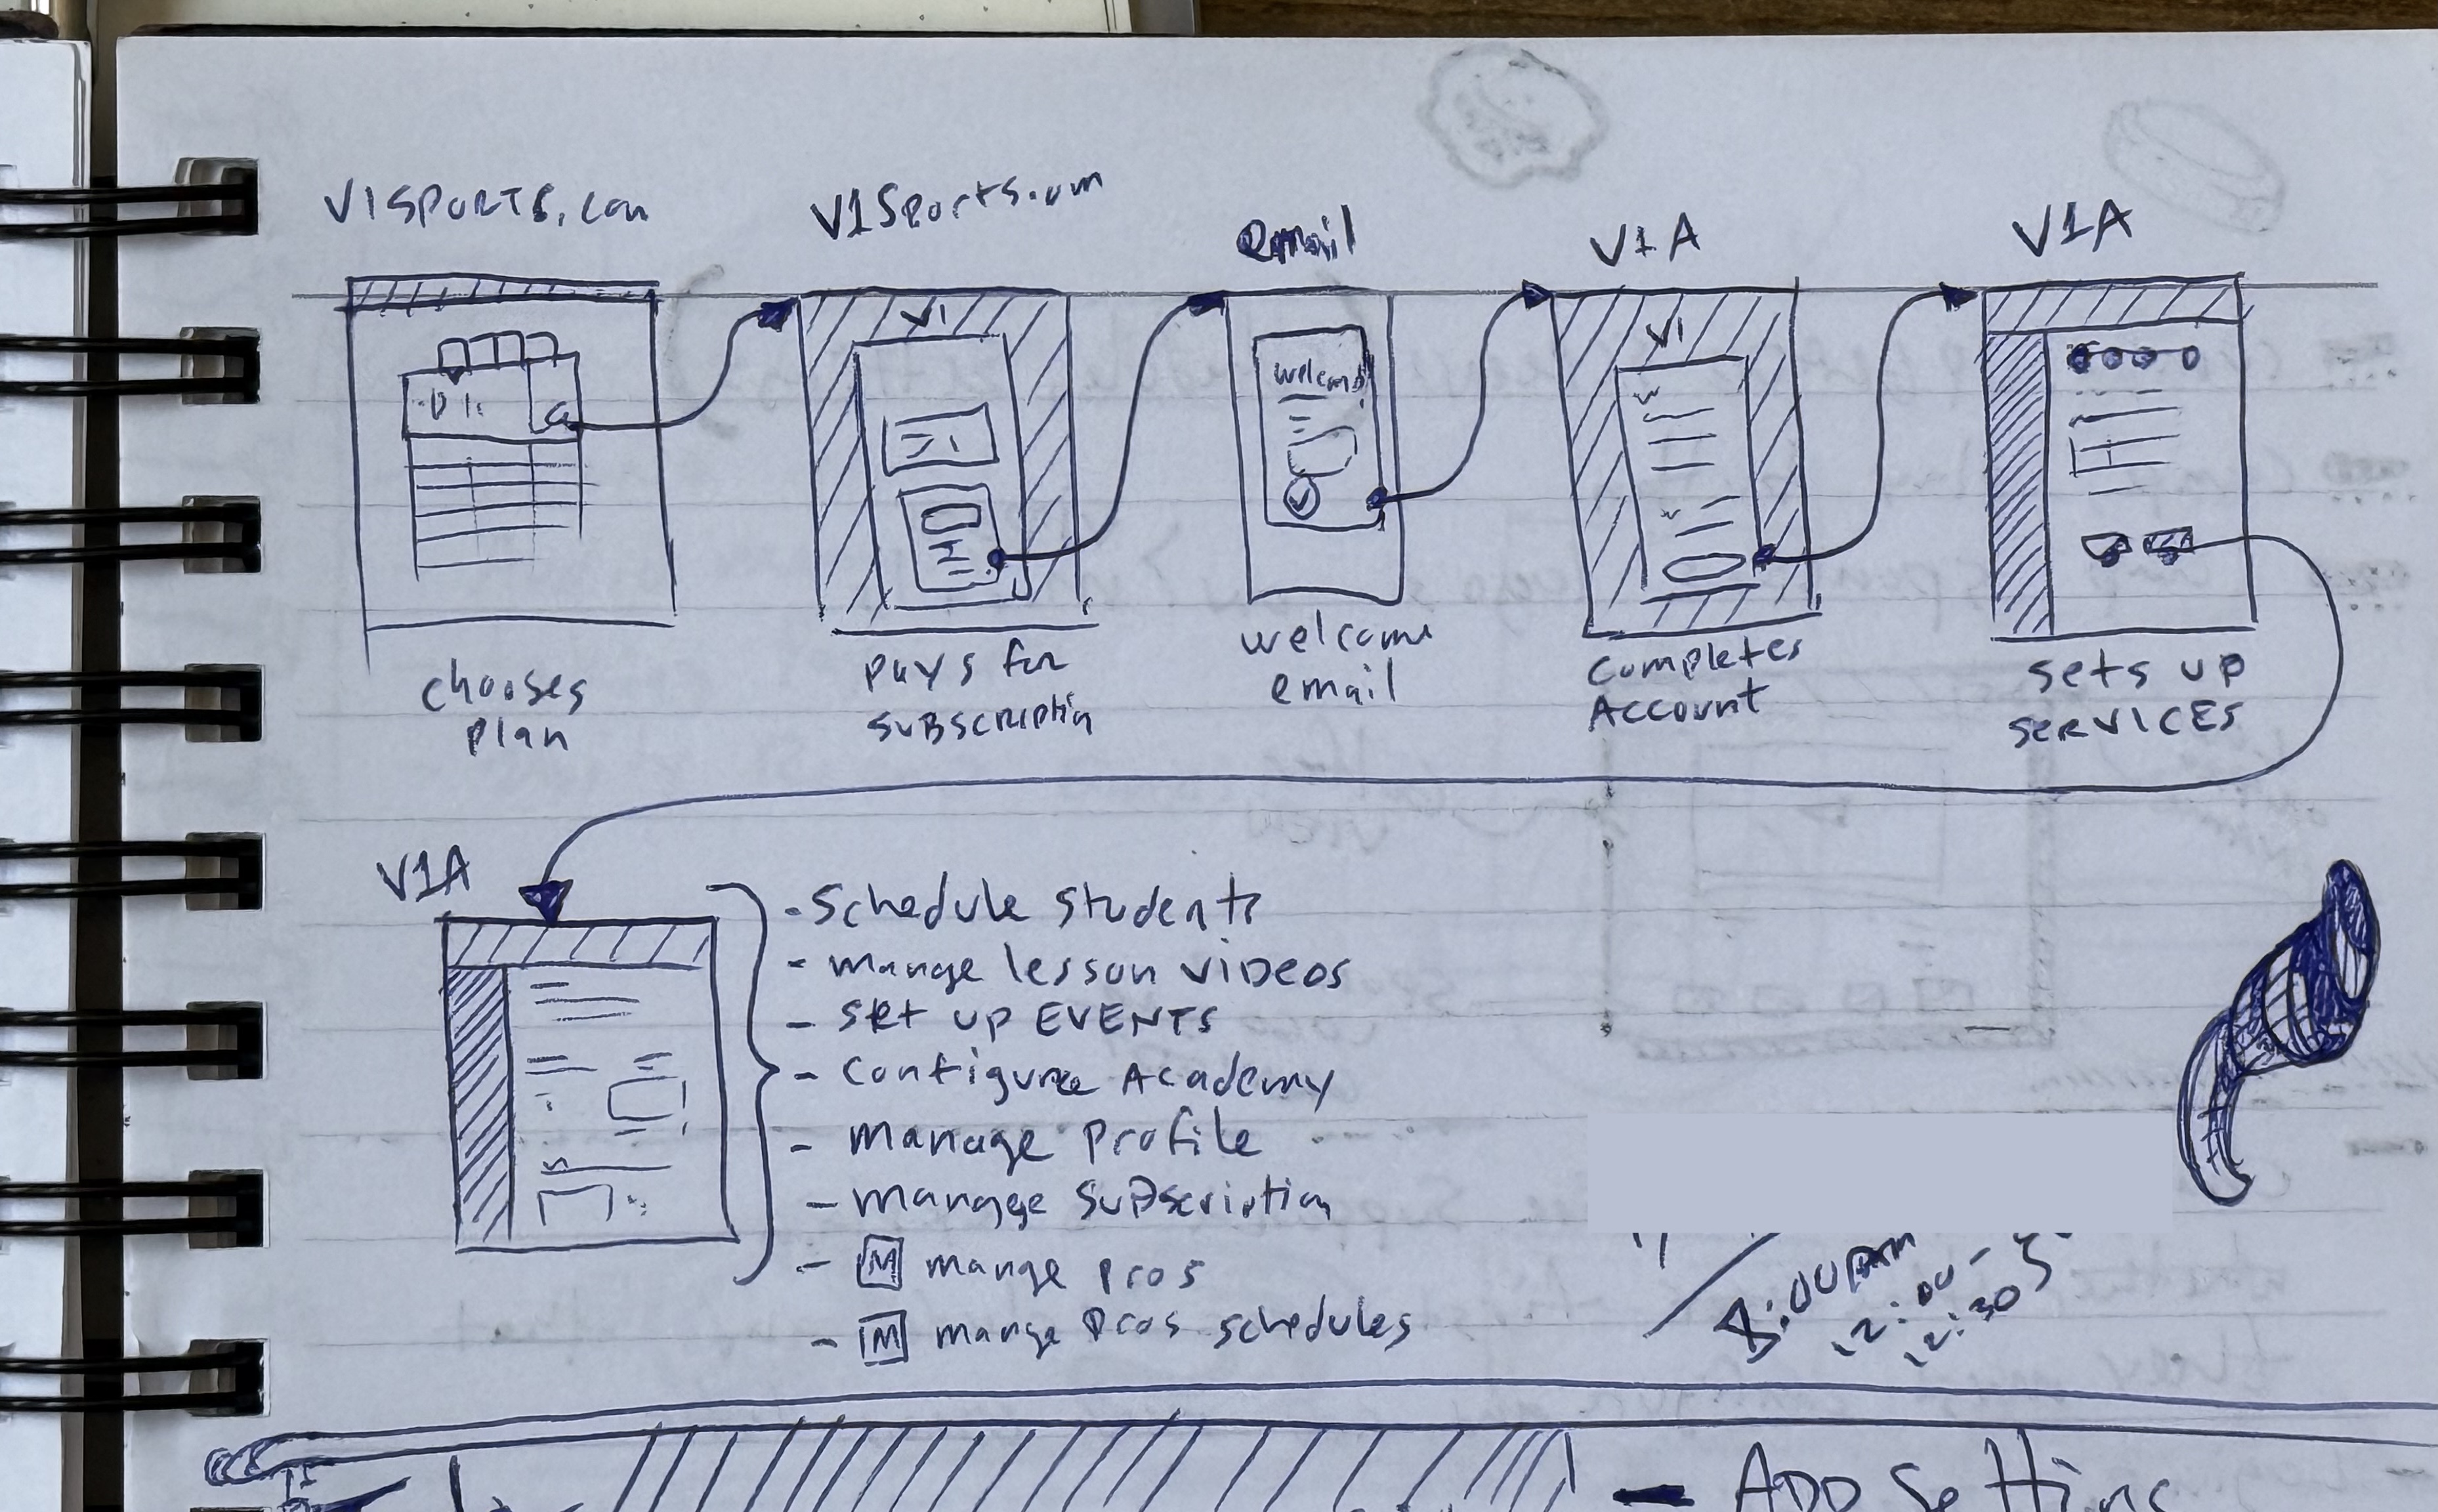 V1SPORTS.com
V1Sports.com
email
V1A
V1A
V1
welcome
V1
chooses
plan
pays for
subscription
welcome
email
completes
Account
sets up
services
V1A
- Schedule students
- mange lesson videos
- set up EVENTS
- configure Academy
- manage profile
- manage subscription
- M mange pros
- M mange pros schedules
8:00AM
12:00 -
12:30
- ADD Setting